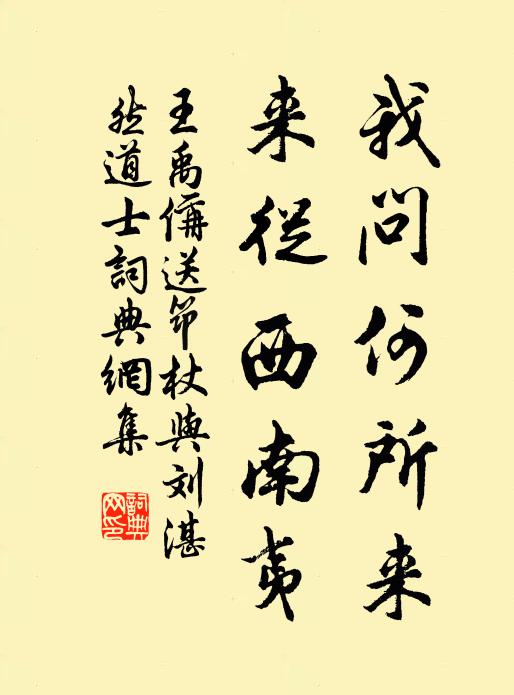 我问何所来
来从西南夷
王禹偁送笻杖与刘湛
然道士词典网集
词典网印